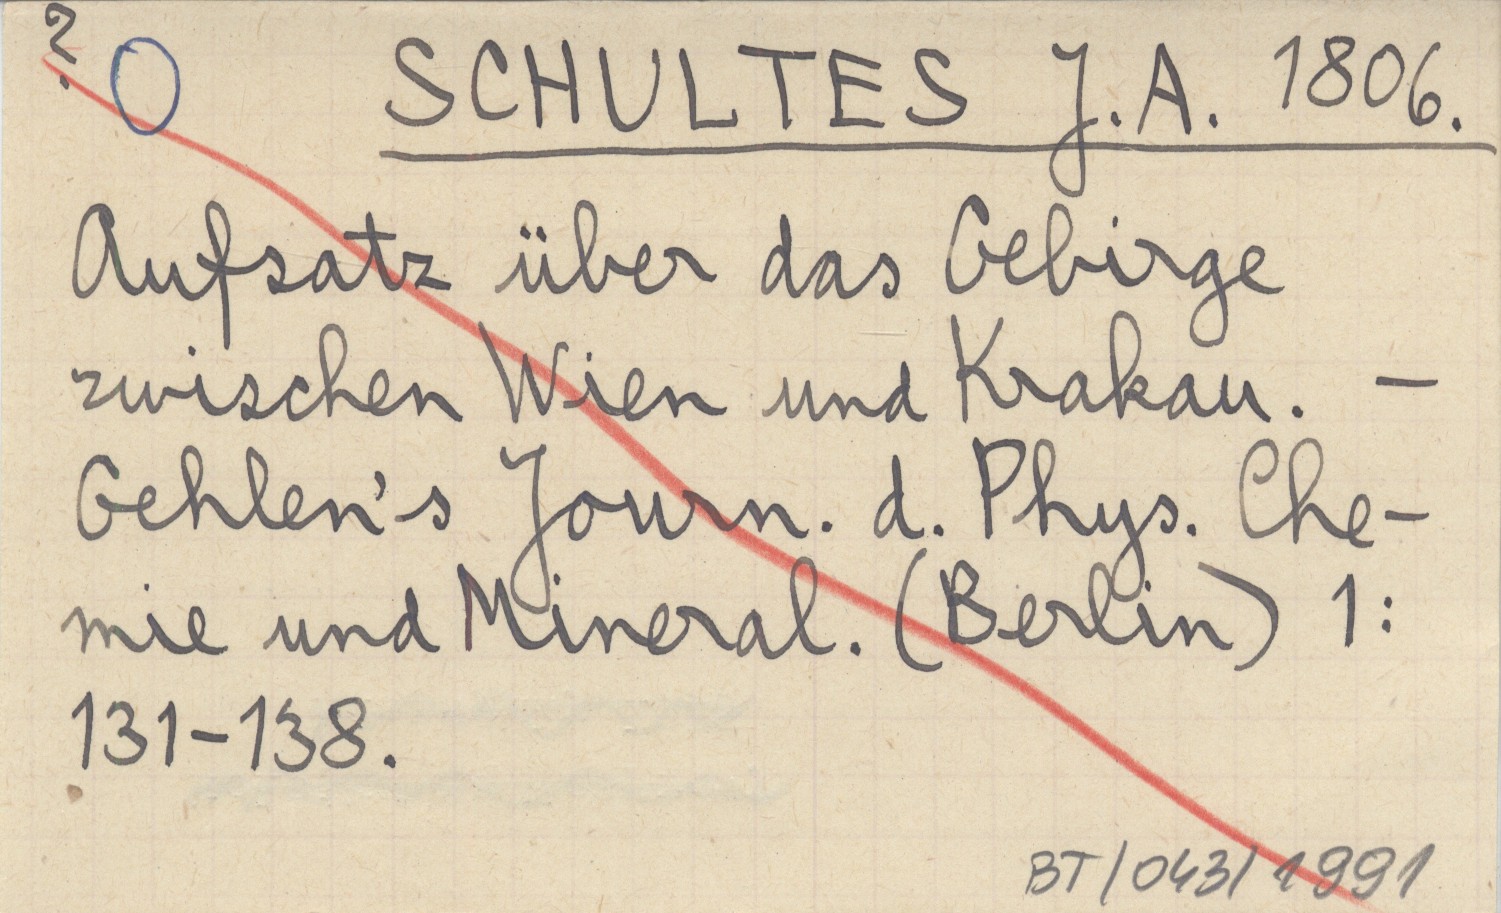 ? O SCHULTES J.A. 1806.
Aufsatz über das Gebirge
zwischen Wien und Krakau. –
Gehlen's Journ. d. Phys. Che-
mie und Mineral. (Berlin) 1:
131-138.
BT/043/1991